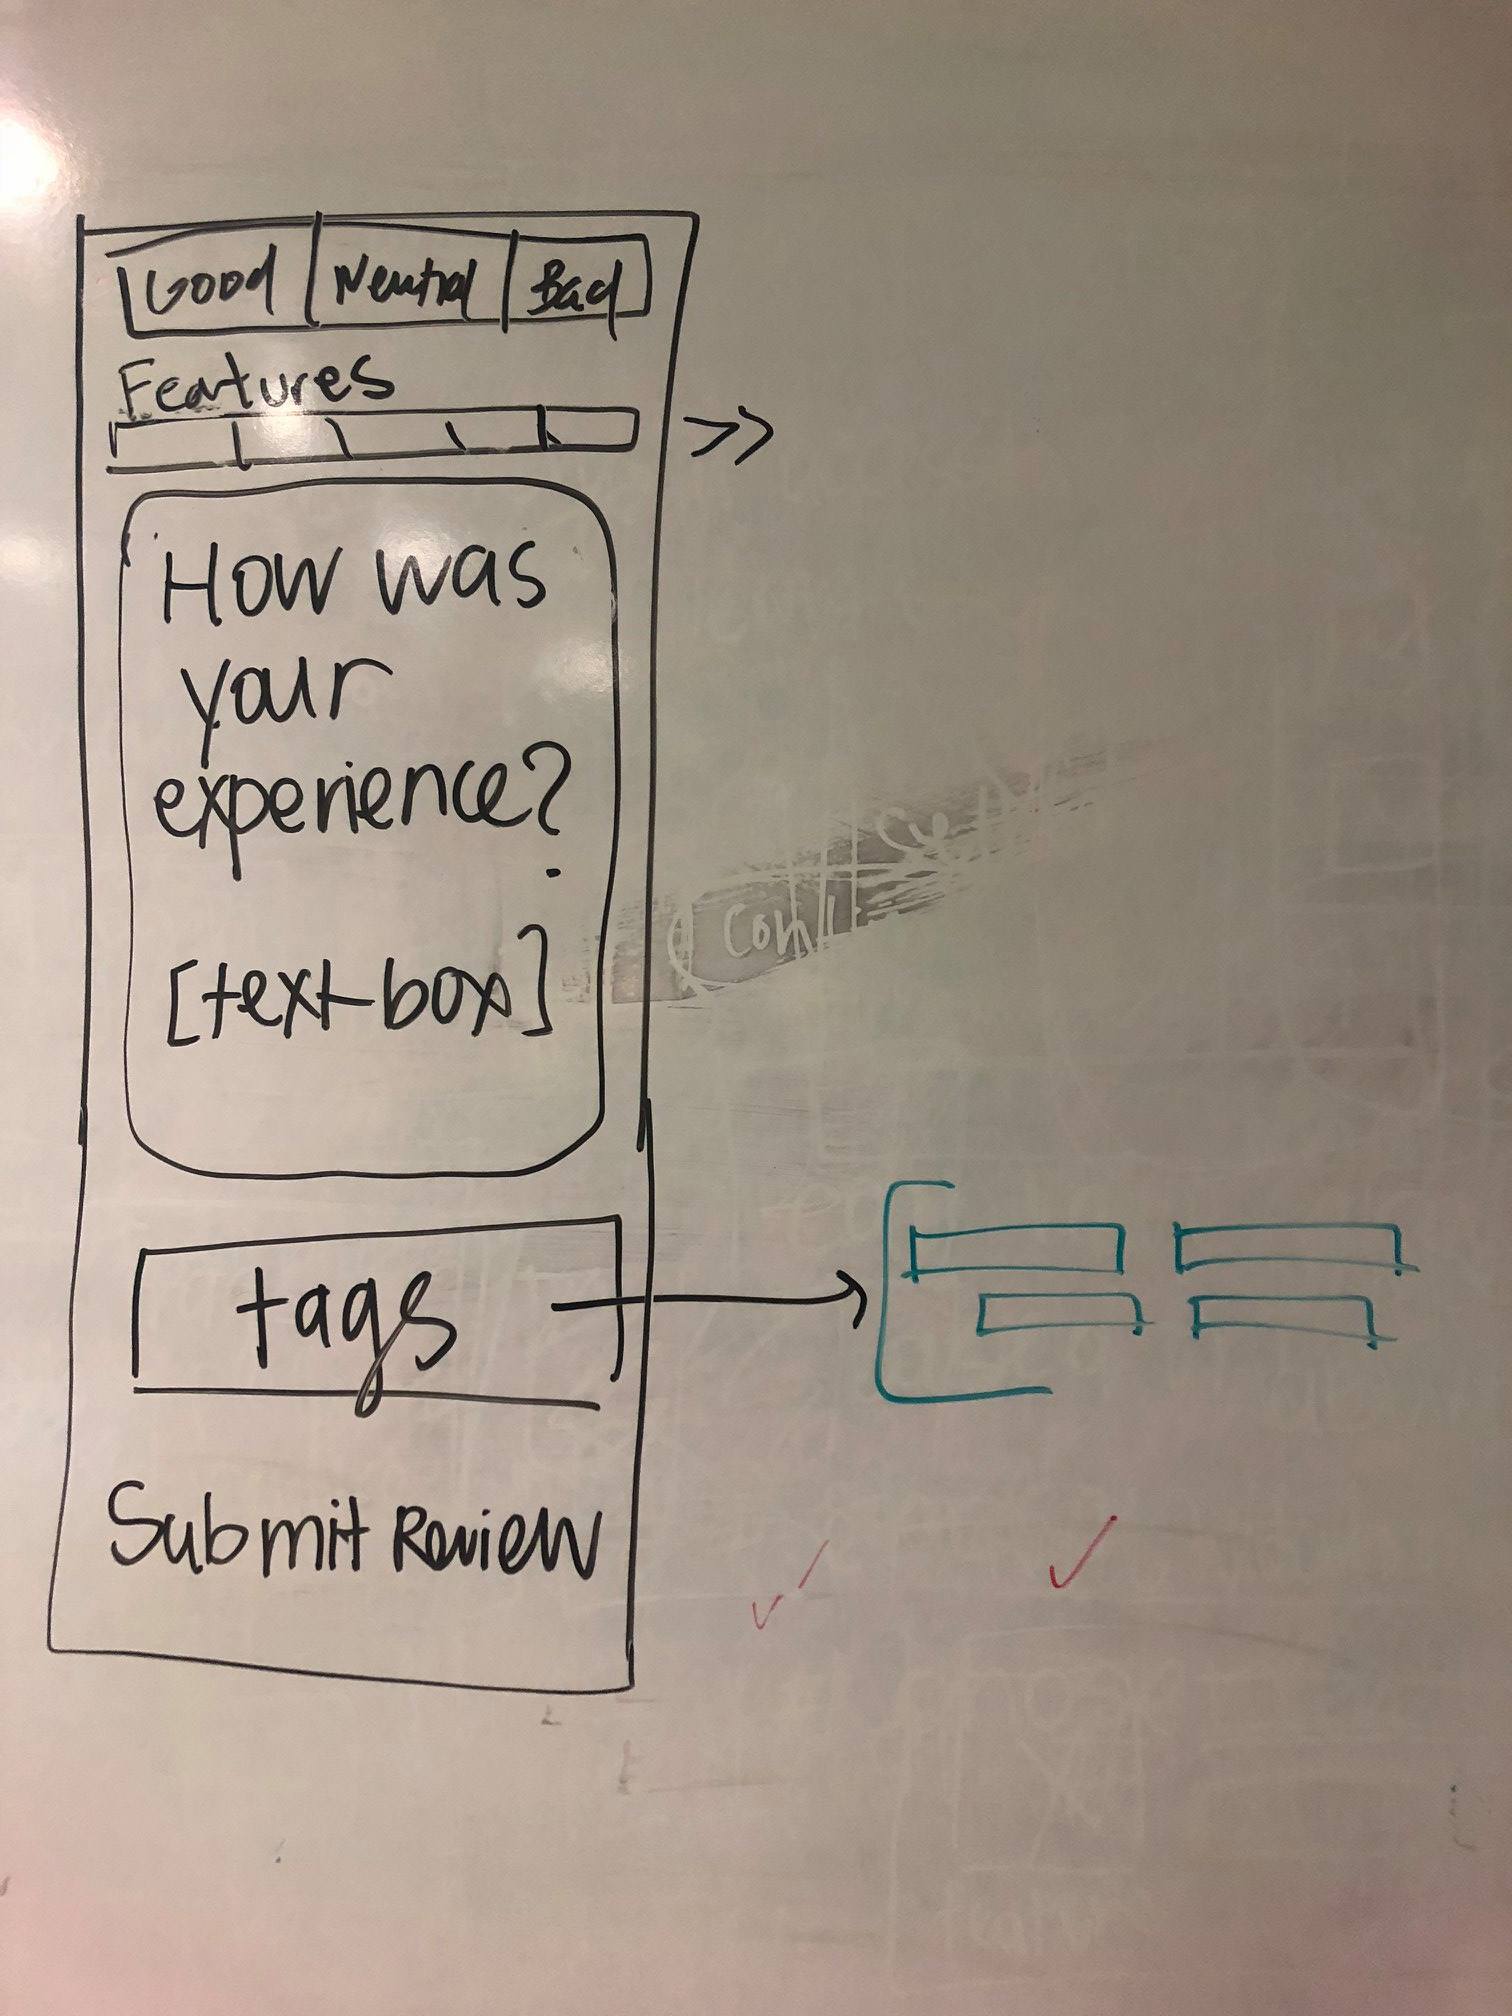 Good Neutral Bad
Features
>>
How was
your
experience?
[text box]
tags
Submit Review